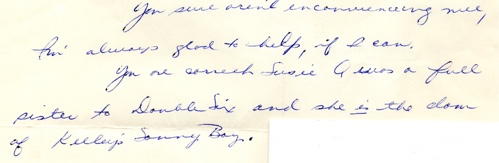 You sure aren't inconveniencing me,
I'm always glad to help, if I can.
You are correct Susie Q was a full
sister to Double Six and she is the dam
of Kelley's Sonny Boy.